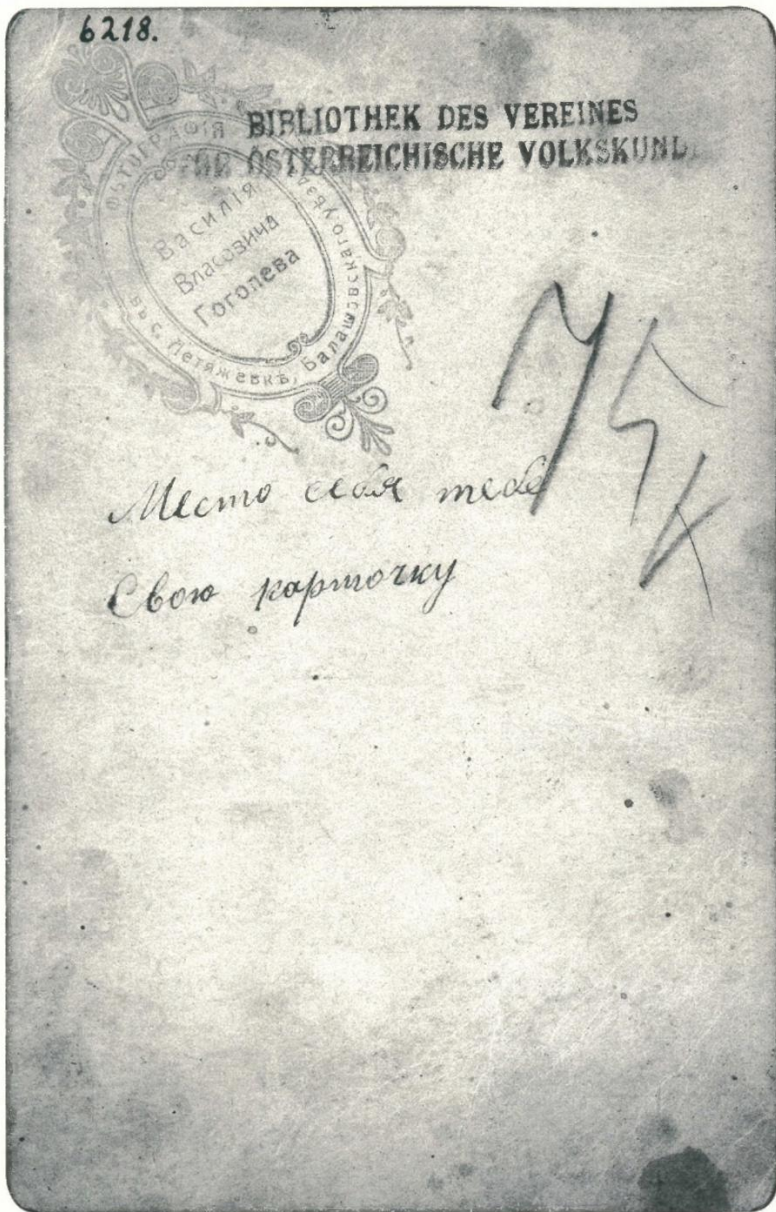 6218.
BIBLIOTHEK DES VEREINES
FÜR ÖSTERREICHISCHE VOLKSKUND
ФЬТОГРАФІЯ
Василія
Власовича
Гоголева
въ с. Летяжевкѣ, Балашовскаго уѣзд
Место себя тебе
Свою карточку